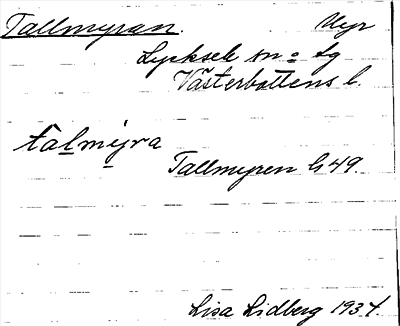 Tallmyran. Myr
Lycksele sn o tg
Västerbottens l.
talmyra
Tallmyren G49.
Lisa Lidberg 1934